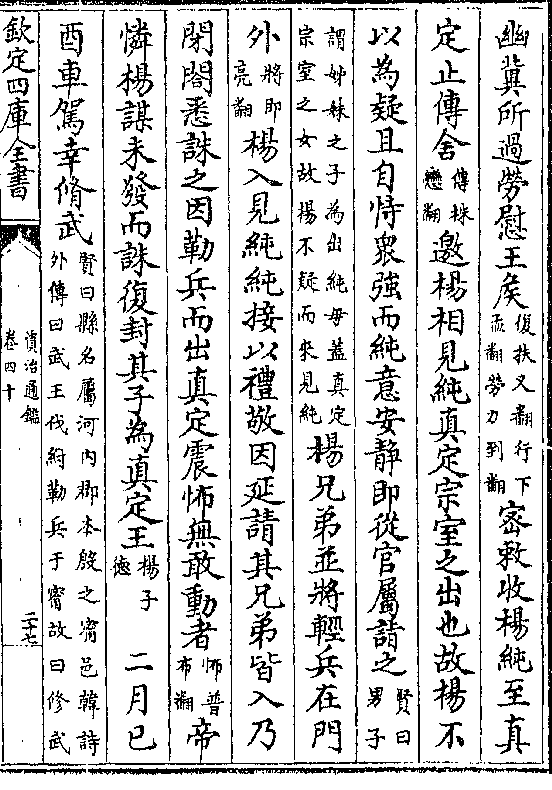 幽冀所過勞慰王矦復扶又翻行下孟翻勞力到翻密敕收楊純至真
定止傳舍傳株戀翻邀楊相見純真定宗室之出也故楊不
以為疑且自恃衆強而純意安靜即從官屬詣之賢曰男子
謂姊妹之子為出純母蓋真定宗室之女故楊不疑而來見純楊兄弟並將輕兵在門
外將即亮翻楊入見純純接以禮敬因延請其兄弟皆入乃
閉閤悉誅之因勒兵而出真定震怖無敢動者怖普布翻帝
憐楊謀未發而誅復封其子為真定王楊子德二月己
酉車駕幸脩武賢曰縣名屬河内郡本殷之甯邑韓詩外傳曰武王伐紂勒兵于甯故曰修武
欽定四庫全書
資治通鑑
卷四十
二十七